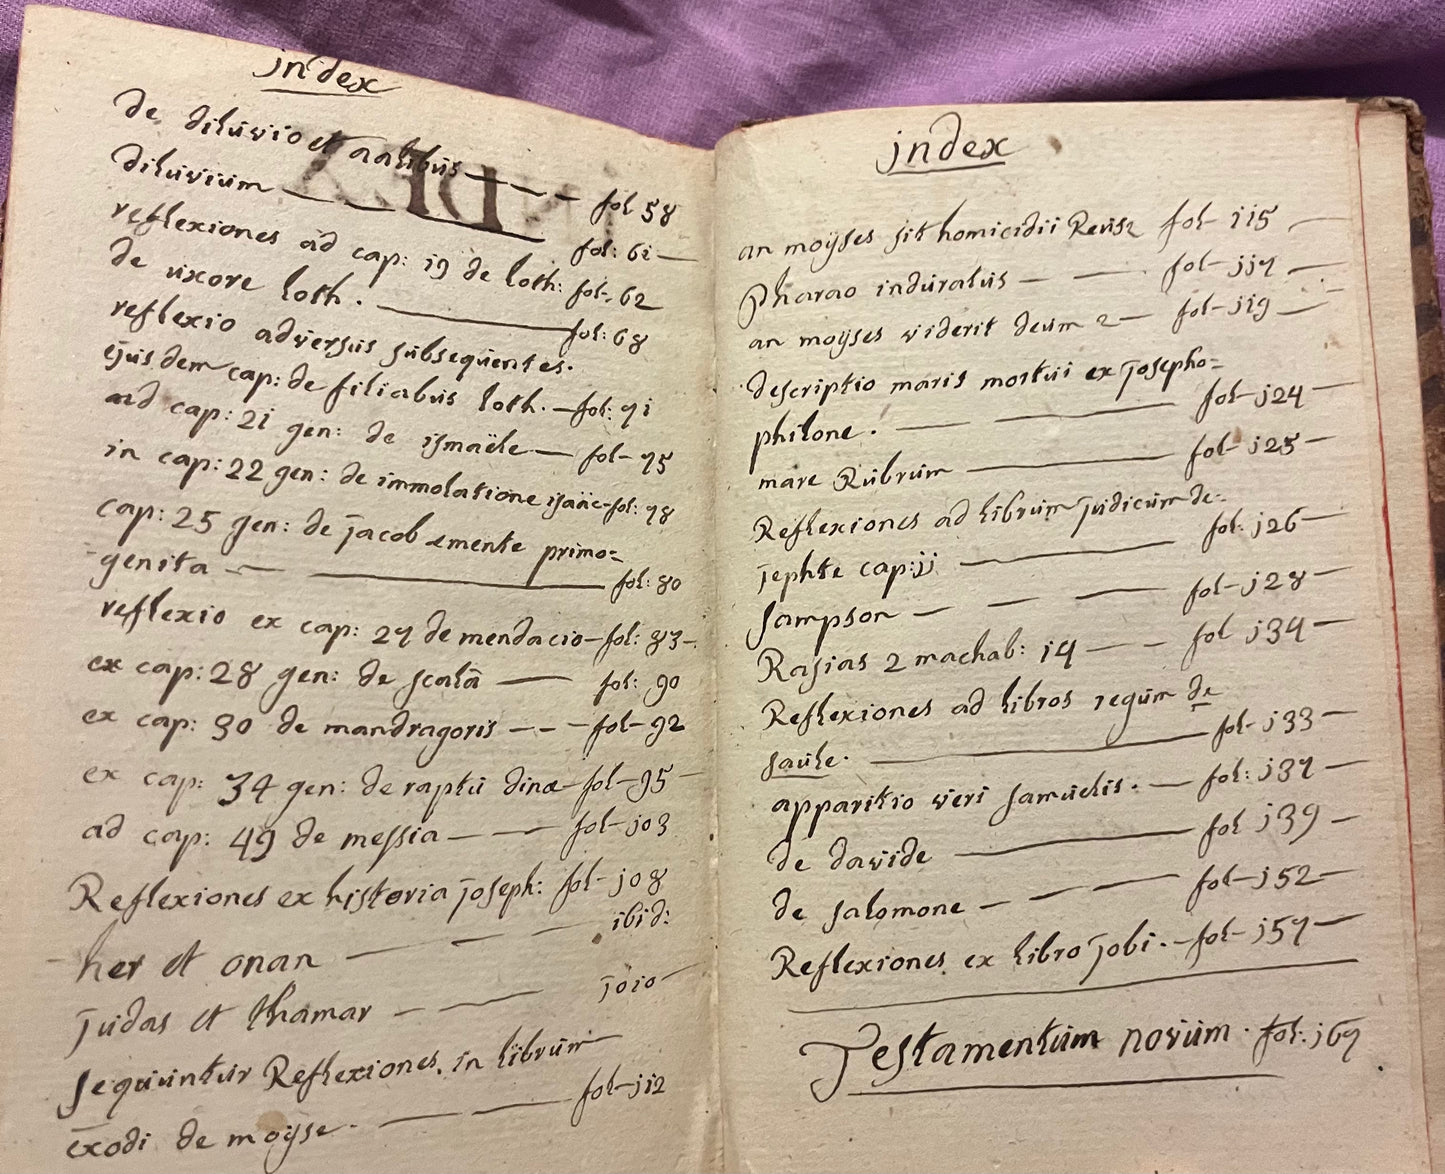 jndex
de diluvio et aalibus fol 58
diluvium fol: 61
reflexiones ad cap: 19 de loth: fol: 62
de uxore loth. fol: 68
reflexio adversus subsequentes.
ejusdem cap: de filiabus loth. fol: 71
ad cap: 21 gen: de ismaële fol 75
in cap: 22 gen: de immolatione isaäc fol: 78
cap: 25 gen: de jacob emente primo=
genita fol: 80
reflexio ex cap: 27 de mendacio fol: 83
ex cap: 28 gen: de scalâ fol: 90
ex cap: 30 de mandragoris fol 92
ex cap: 34 gen: de raptu dinæ fol 95
ad cap: 49 de messia fol j03
Reflexiones ex historia joseph: fol j08
her et onan ibid:
judas et thamar j0j0
sequuntur Reflexiones in librum
exodi de moÿse. fol jj2
INDEX
jndex
an moÿses sit homicidii Reus? fol jj5
Pharao induratus fol jj7
an moÿses viderit deum? fol jj9
descriptio maris mortui ex josepho=
philone. fol j24
mare Rubrum fol j25
Reflexiones ad librum judicum de
jephte cap: jj fol: j26
sampson fol j28
Rasias 2 machab: 14 fol j34
Reflexiones ad libros regum de
saule. fol j33
apparitio veri samuelis. fol: j37
de davide fol j39
de salomone fol j52
Reflexiones ex libro jobi. fol j57
Testamentum novum. fol: j67